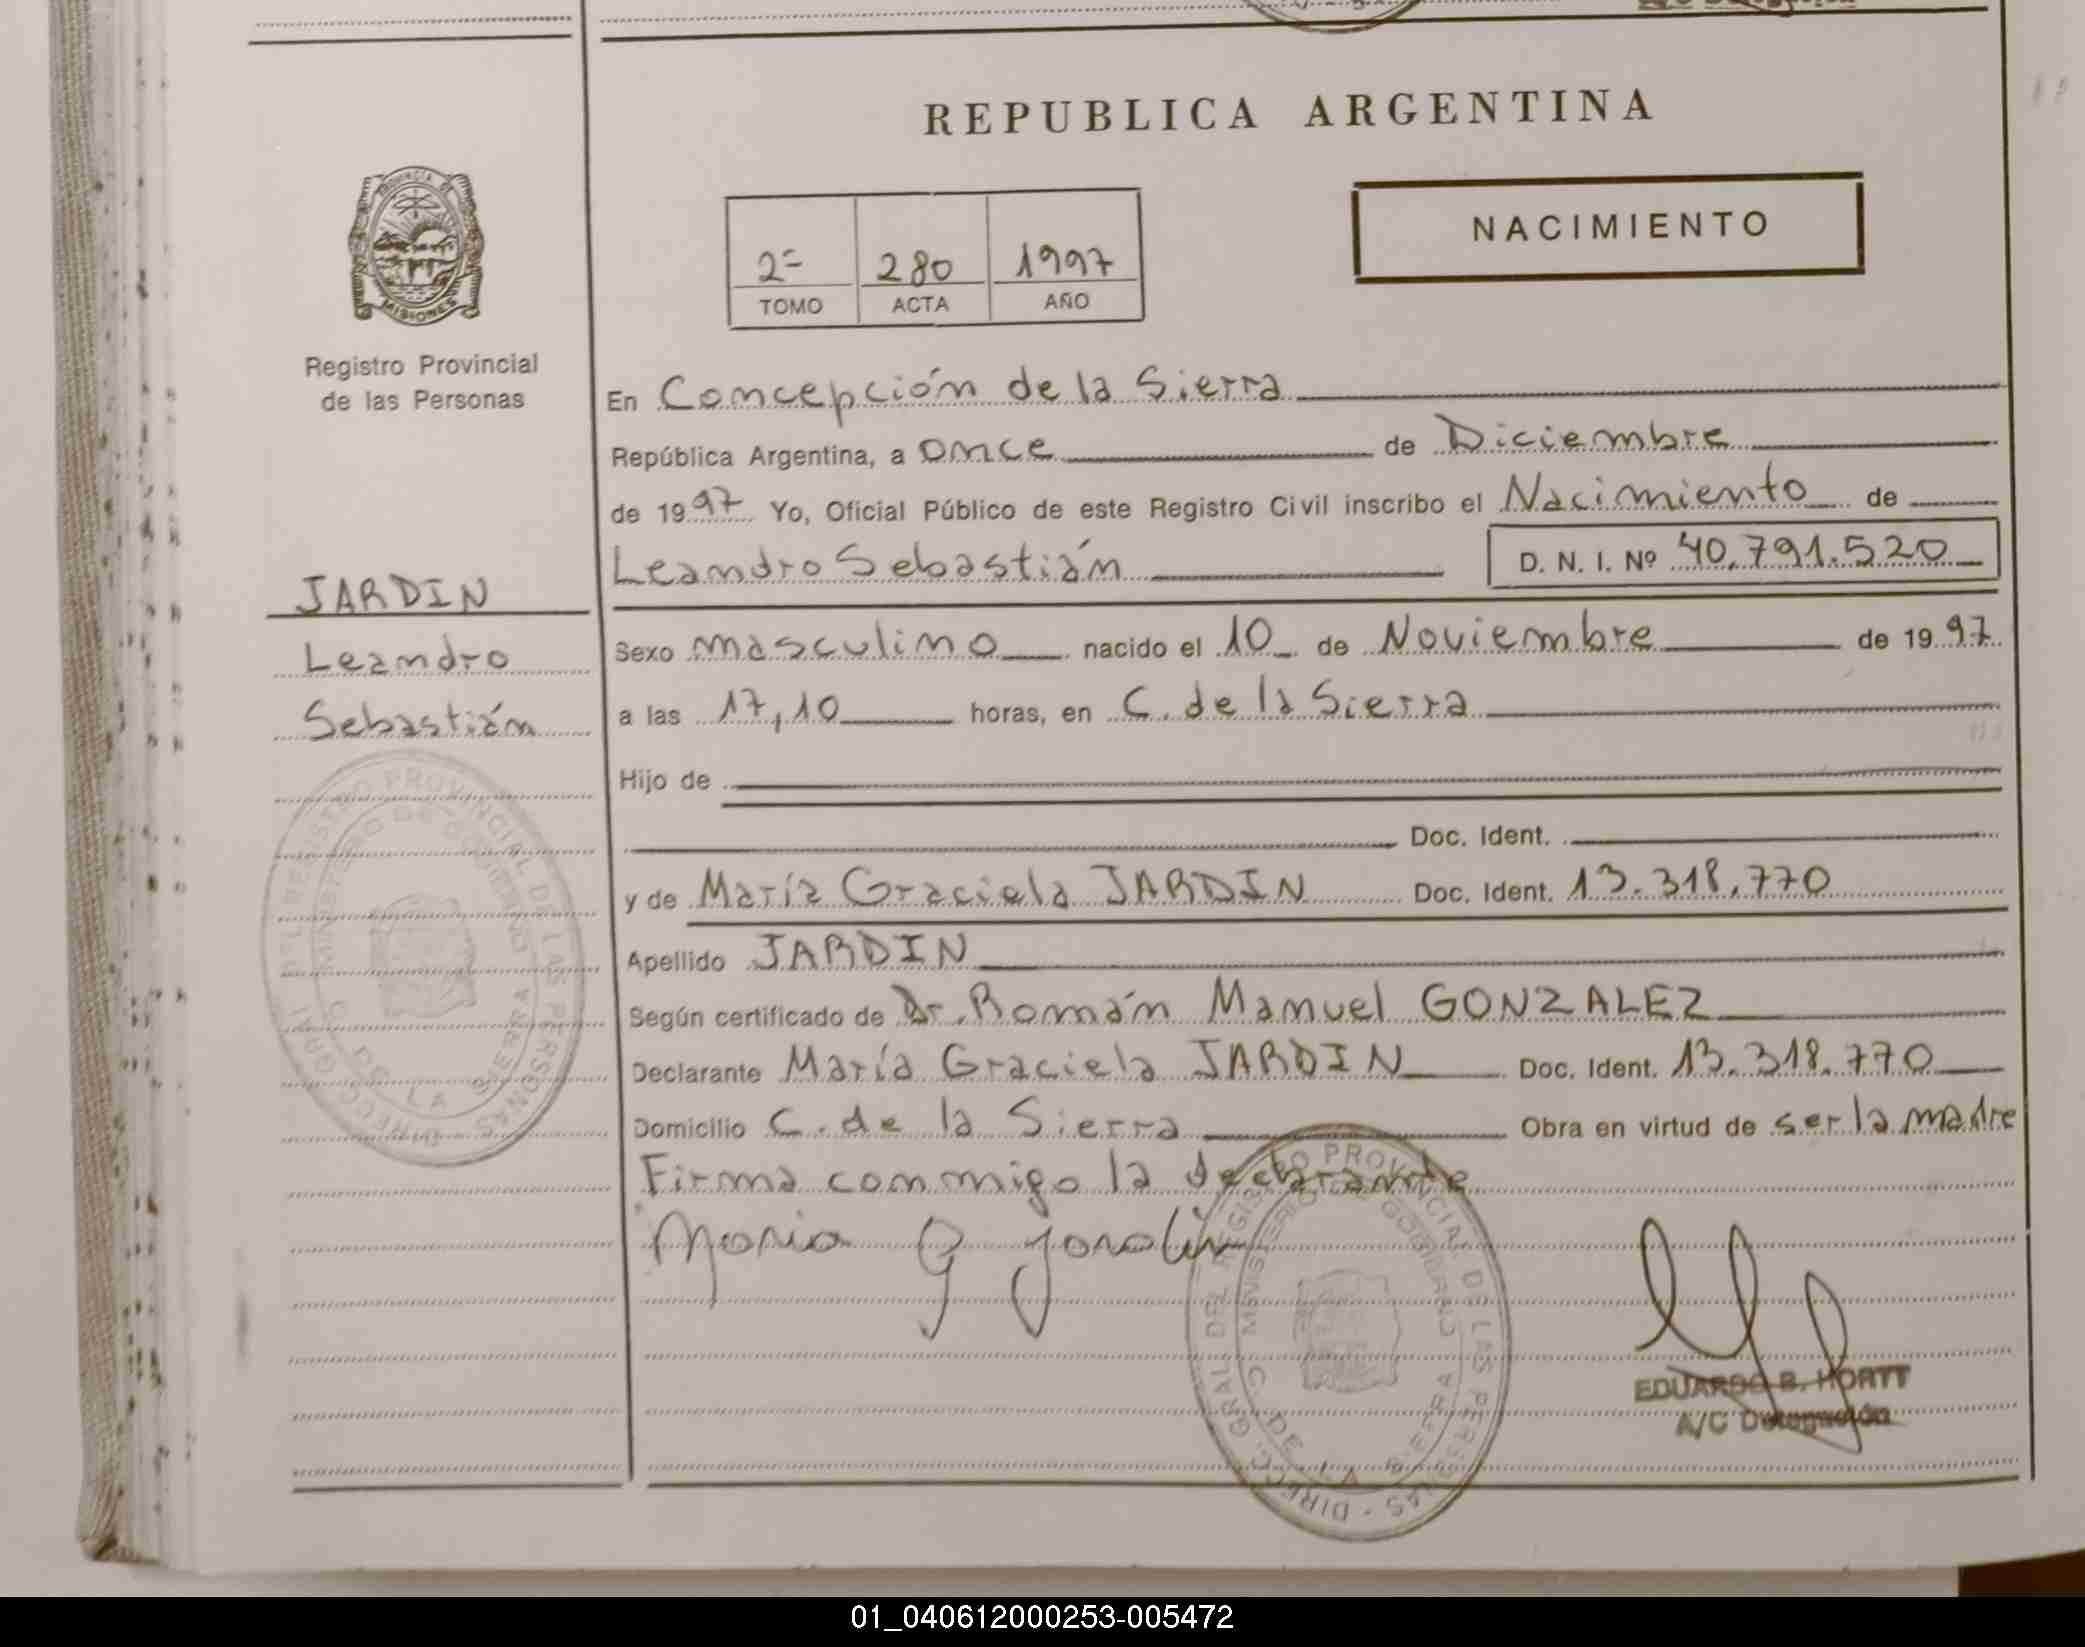 REPUBLICA ARGENTINA
NACIMIENTO
2= 280 1997
TOMO ACTA AÑO
PROVINCIA DE
MISIONES
Registro Provincial
de las Personas
JARDIN
Leandro
Sebastián
En Concepción de la Sierra
República Argentina, a once de Diciembre
de 1997 Yo, Oficial Público de este Registro Civil inscribo el Nacimiento de
Leandro Sebastián D. N. I. Nº 40.791.520
Sexo masculino nacido el 10 de Noviembre de 1997
a las 17,10 horas, en C. de la Sierra
Hijo de
Doc. Ident.
y de María Graciela JARDIN Doc. Ident. 13.318.770
Apellido JARDIN
Según certificado de Dr. Román Manuel GONZALEZ
Declarante María Graciela JARDIN Doc. Ident. 13.318.770
Domicilio C. de la Sierra Obra en virtud de ser la madre
Firma conmigo la declarante
Maria G Jardin
EDUARDO B. HORTT
A/C Delegación
DIRECC. GRAL. DEL REGISTRO PROVINCIAL DE LAS PERSONAS
MINISTERIO DE GOBIERNO
C. DE LA SIERRA
DIRECC. GRAL. DEL REGISTRO PROVINCIAL DE LAS PERSONAS
MINISTERIO DE GOBIERNO
C. DE LA SIERRA
01_040612000253-005472